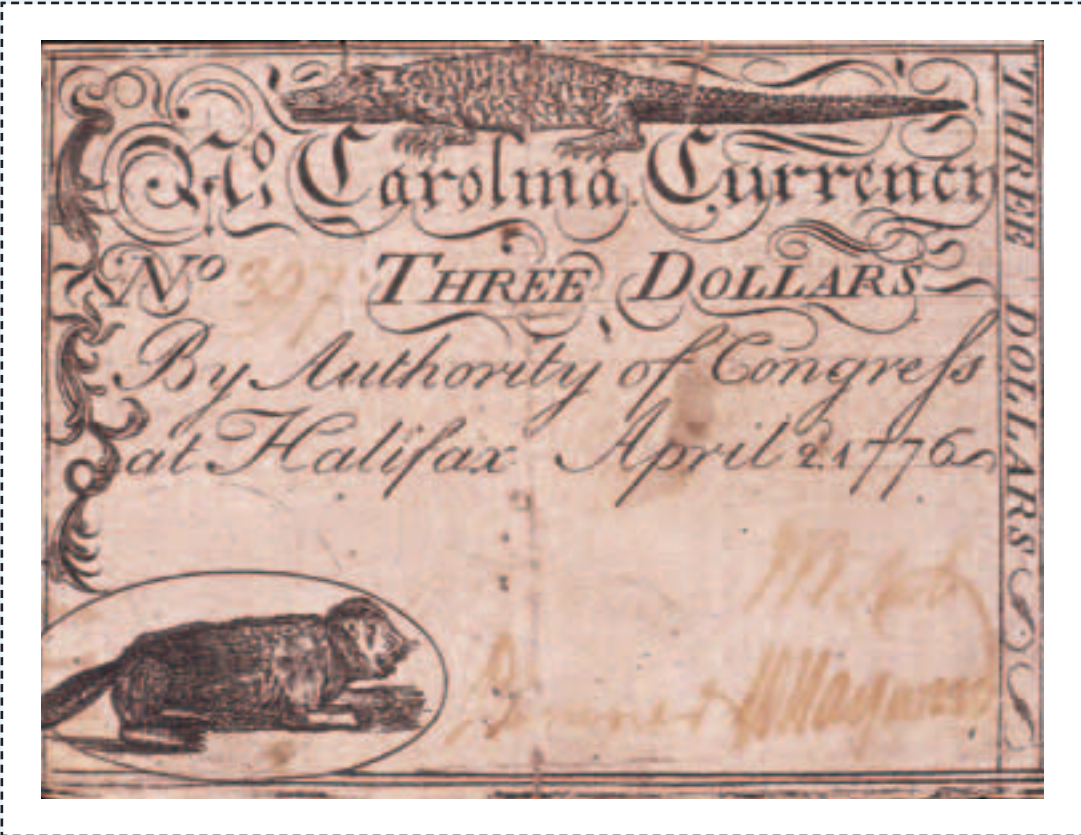 No. Carolina. Currency
No THREE DOLLARS
By Authority of Congreſs
at Halifax April 2. 1776
THREE DOLLARS